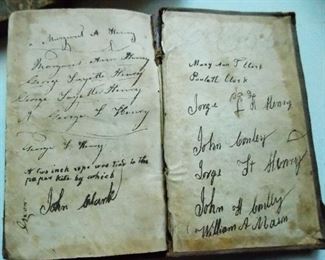 Margaret A Henry
Margaret Ann Henry
George Fayette Henry
George Fayette Henry
George F Henry
George F Henry
A two inch rope was tide to the
paper kite by which
John Clark
Mary Ann T Clark
Clark
Jorge F Henry
John Conley
Jorge Ft Henry
John H Conley
William A Main